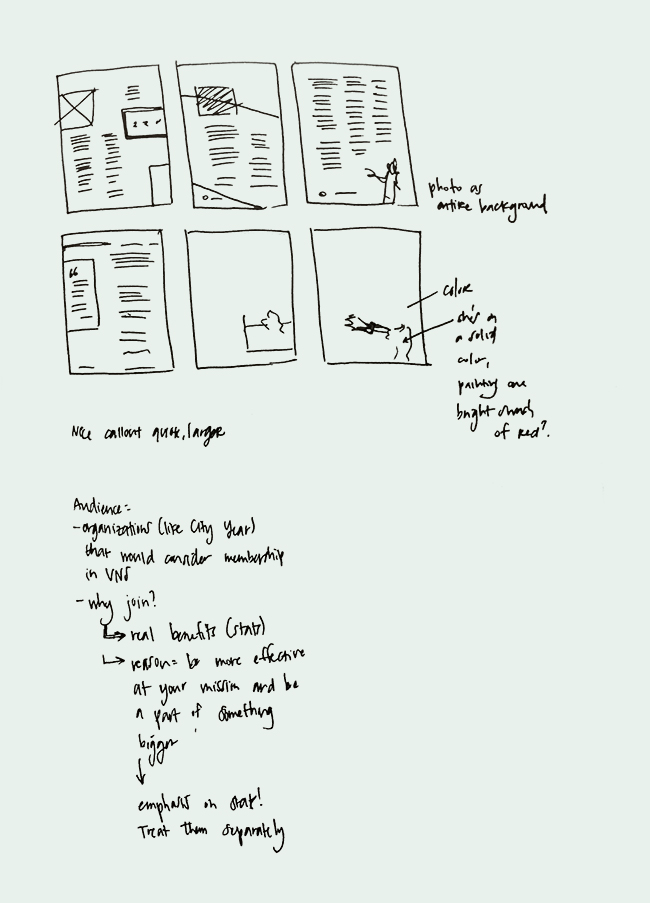 photo as
entire background
color
she's on
a solid
color,
painting one
bright swash
of red?
“
Nice callout quote, larger
Audience=
-organizations (like City Year)
that would consider membership
in VNS
-why join?
real benefits (stats)
reason= be more effective
at your mission and be
a part of something
bigger
emphasis on stat!
Treat them separately